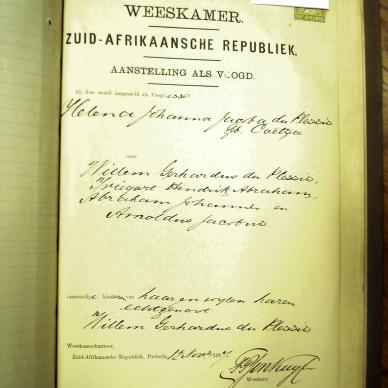 WEESKAMER.
ZUID-AFRIKAANSCHE REPUBLIEK.
AANSTELLING ALS VOOGD.
Bij deze wordt aangesteld als Voogdesse
Helena Johanna Jacoba du Plessis
gb. Coetzee
over
Willem Gerhardus du Plessis,
Hendrik Abraham,
Abraham Johannes en
Arnoldus Jacobus.
minderjarige kinderen van haar en wylen haren
echtgenoot
Willem Gerhardus du Plessis
Weeskamerkantoor,
Zuid-Afrikaansche Republiek, Pretoria, 12 Nov. 189
Weesheer.